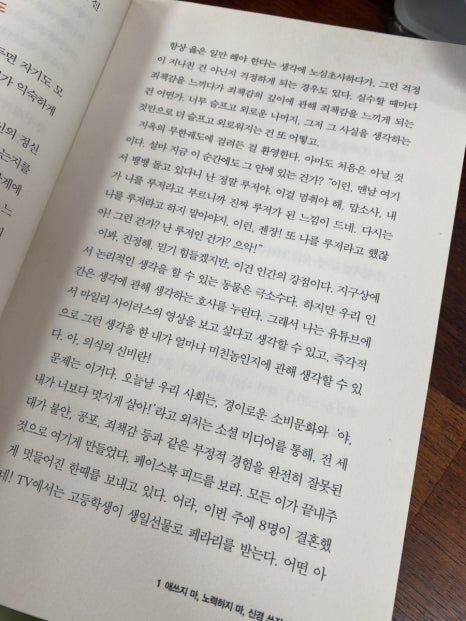 신
두면 자기도 모
가 익숙하게
인의 정신
는지를
간계에
느
항상 옳은 일만 해야 한다는 생각에 노심초사하다가, 그런 걱정
이 지나친 건 아닌지 걱정하게 되는 경우도 있다. 실수할 때마다
죄책감을 느끼다가 죄책감의 깊이에 관해 죄책감을 느끼게 되는
건 어떤가. 너무 슬프고 외로운 나머지, 그저 그 사실을 생각하는
것만으로 더 슬프고 외로워지는 건 또 어떻고.
지옥의 무한궤도에 걸려든 걸 환영한다. 아마도 처음은 아닐 것
이다. 설마 지금 이 순간에도 그 안에 있는 건가? “이런, 맨날 여기
서 뱅뱅 돌고 있다니 난 정말 루저야. 이걸 멈춰야 해. 맙소사, 내
가 나를 루저라고 부르니까 진짜 루저가 된 느낌이 드네. 다시는
나를 루저라고 하지 말아야지. 이런, 젠장! 또 나를 루저라고 했잖
아! 그런 건가? 난 루저인 건가? 으악!”
이봐, 진정해. 믿기 힘들겠지만, 이건 인간의 강점이다. 지구상에
서 논리적인 생각을 할 수 있는 동물은 극소수다. 하지만 우리 인
간은 생각에 관해 생각하는 호사를 누린다. 그래서 나는 유튜브에
서 마일리 사이러스의 영상을 보고 싶다고 생각할 수 있고, 즉각적
으로 그런 생각을 한 내가 얼마나 미친놈인지에 관해 생각할 수 있
다. 아, 의식의 신비란!
문제는 이거다. 오늘날 우리 사회는, 경이로운 소비문화와 ‘야,
내가 너보다 멋지게 살아!’라고 외치는 소셜 미디어를 통해, 전 세
대가 불안, 공포, 죄책감 등과 같은 부정적 경험을 완전히 잘못된
것으로 여기게 만들었다. 페이스북 피드를 보라. 모든 이가 끝내주
게 멋들어진 한때를 보내고 있다. 어라, 이번 주에 8명이 결혼했
네! TV에서는 고등학생이 생일선물로 페라리를 받는다. 어떤 아
1 애쓰지 마, 노력하지 마, 신경